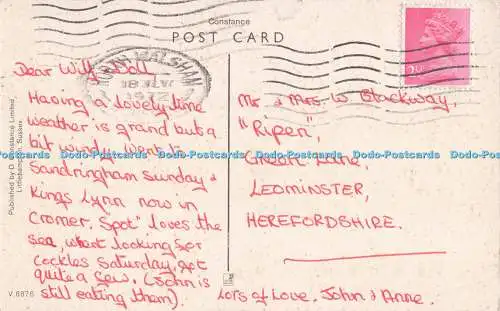 Constance
POST CARD
Dear Wilf & Doll
Having a lovely time
weather is grand but a
bit windy. Went to
Sandringham Sunday &
Kings Lynn now in
Cromer. Spot" loves the
sea, went looking for
cockles Saturday, got
quite a few. (John is
still eating them)
Mr & Mrs. W Blackway,
"Ripen",
Green Lane,
LEOMINSTER,
HEREFORDSHIRE.
Lots of Love. John & Anne.
Published by D. Constance Limited,
Littlehampton, Sussex
V.6876
NORTH WALSHAM
Dodo-Postcards Dodo-Postcards Dodo-Postcards Dodo-Postcards Dodo-Postcards Dodo-Postcards